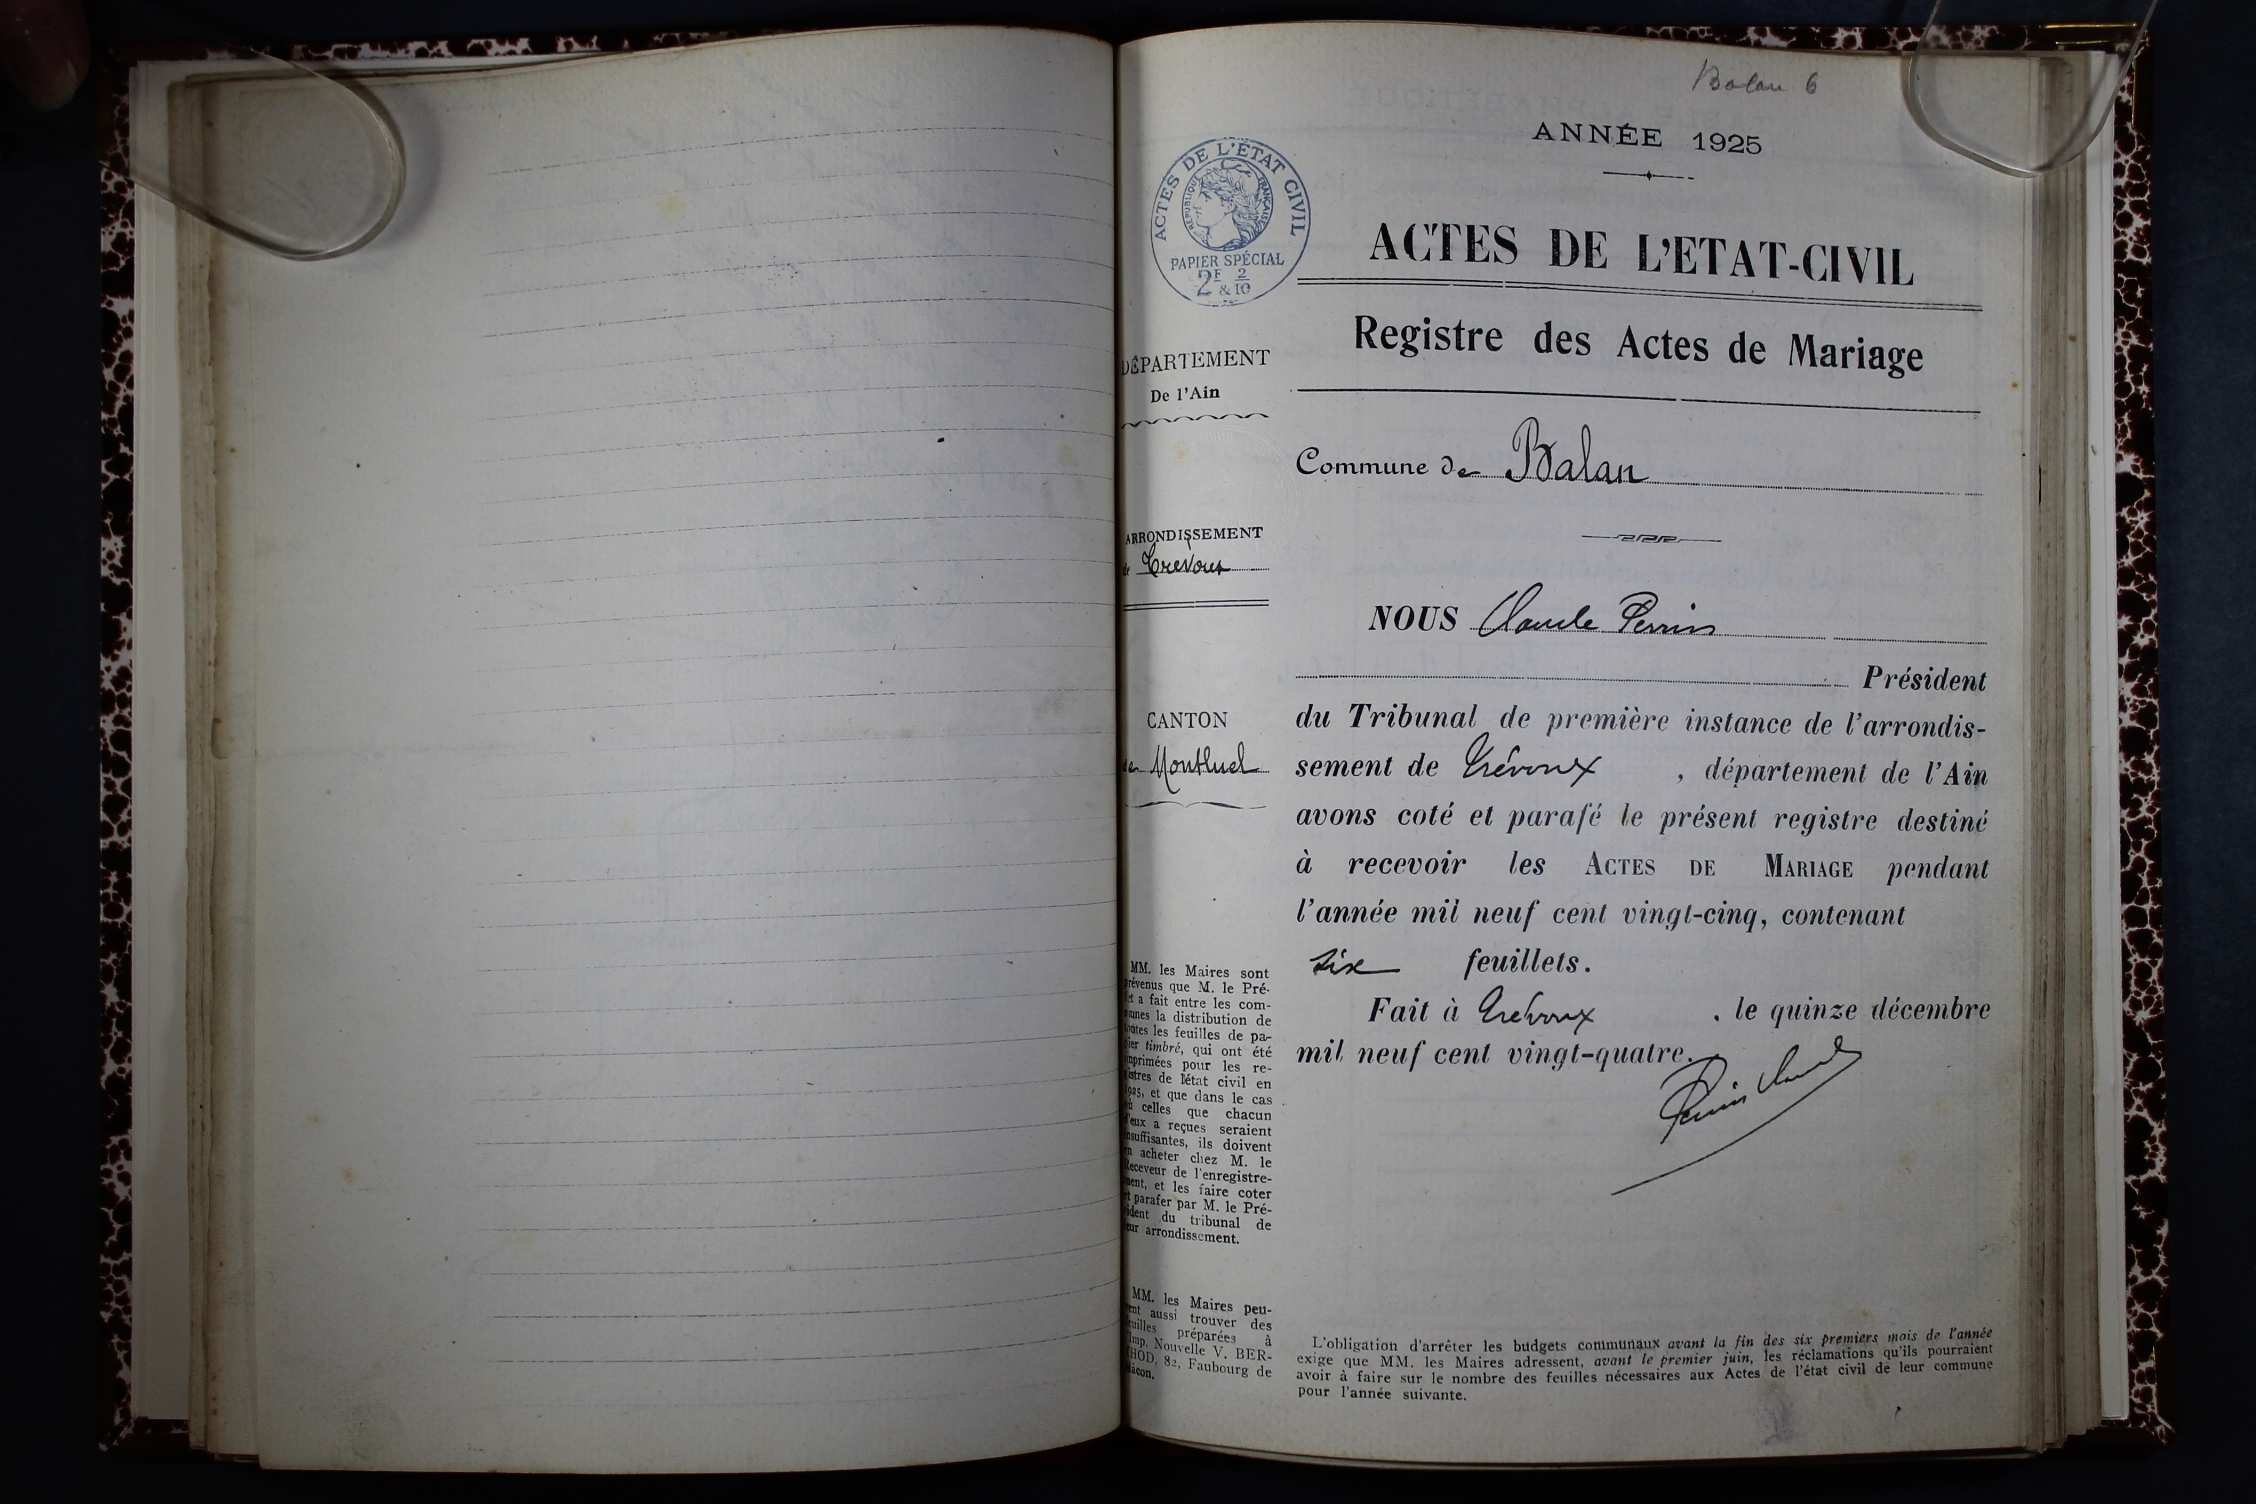 Balan 6
ANNÉE 1925
ACTES DE L'ÉTAT CIVIL
RÉPUBLIQUE FRANÇAISE
PAPIER SPÉCIAL
2F & 2/10
ACTES DE L'ETAT-CIVIL
Registre des Actes de Mariage
DÉPARTEMENT
De l'Ain
Commune de Balan
ARRONDISSEMENT
de Trévoux
CANTON
de Montluel
NOUS Claude Perrin
Président
du Tribunal de première instance de l'arrondis-
sement de Trévoux , département de l'Ain
avons coté et parafé le présent registre destiné
à recevoir les ACTES DE MARIAGE pendant
l'année mil neuf cent vingt-cinq, contenant
six feuillets.
Fait à Trévoux , le quinze décembre
mil neuf cent vingt-quatre.
Perrin Claude
MM. les Maires sont
prévenus que M. le Pré-
fet a fait entre les com-
munes la distribution de
toutes les feuilles de pa-
pier timbré, qui ont été
imprimées pour les re-
gistres de l'état civil en
1925, et que dans le cas
où celles que chacun
d'eux a reçues seraient
insuffisantes, ils doivent
en acheter chez M. le
Receveur de l'enregistre-
ment, et les faire coter
et parafer par M. le Pré-
sident du tribunal de
leur arrondissement.
MM. les Maires peu-
vent aussi trouver des
feuilles préparées à
l'Imp. Nouvelle V. BER-
THOD, 82, Faubourg de
Mâcon.
L'obligation d'arrêter les budgets communaux avant la fin des six premiers mois de l'année
exige que MM. les Maires adressent, avant le premier juin, les réclamations qu'ils pourraient
avoir à faire sur le nombre des feuilles nécessaires aux Actes de l'état civil de leur commune
pour l'année suivante.